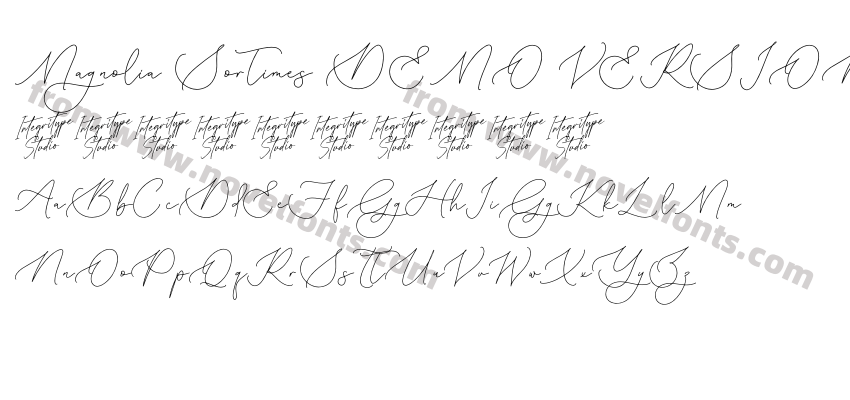 Magnolia SorTimes DEMO VERSION
Integritype Studio Integritype Studio Integritype Studio Integritype Studio Integritype Studio Integritype Studio Integritype Studio Integritype Studio Integritype Studio Integritype Studio
AaBbCcDdEeFfGgHhIiGgKkLlMm
NnOoPpQqRrSsTtUuVvWwXxYyZz
from www.novelfonts.com
from www.novelfonts.com